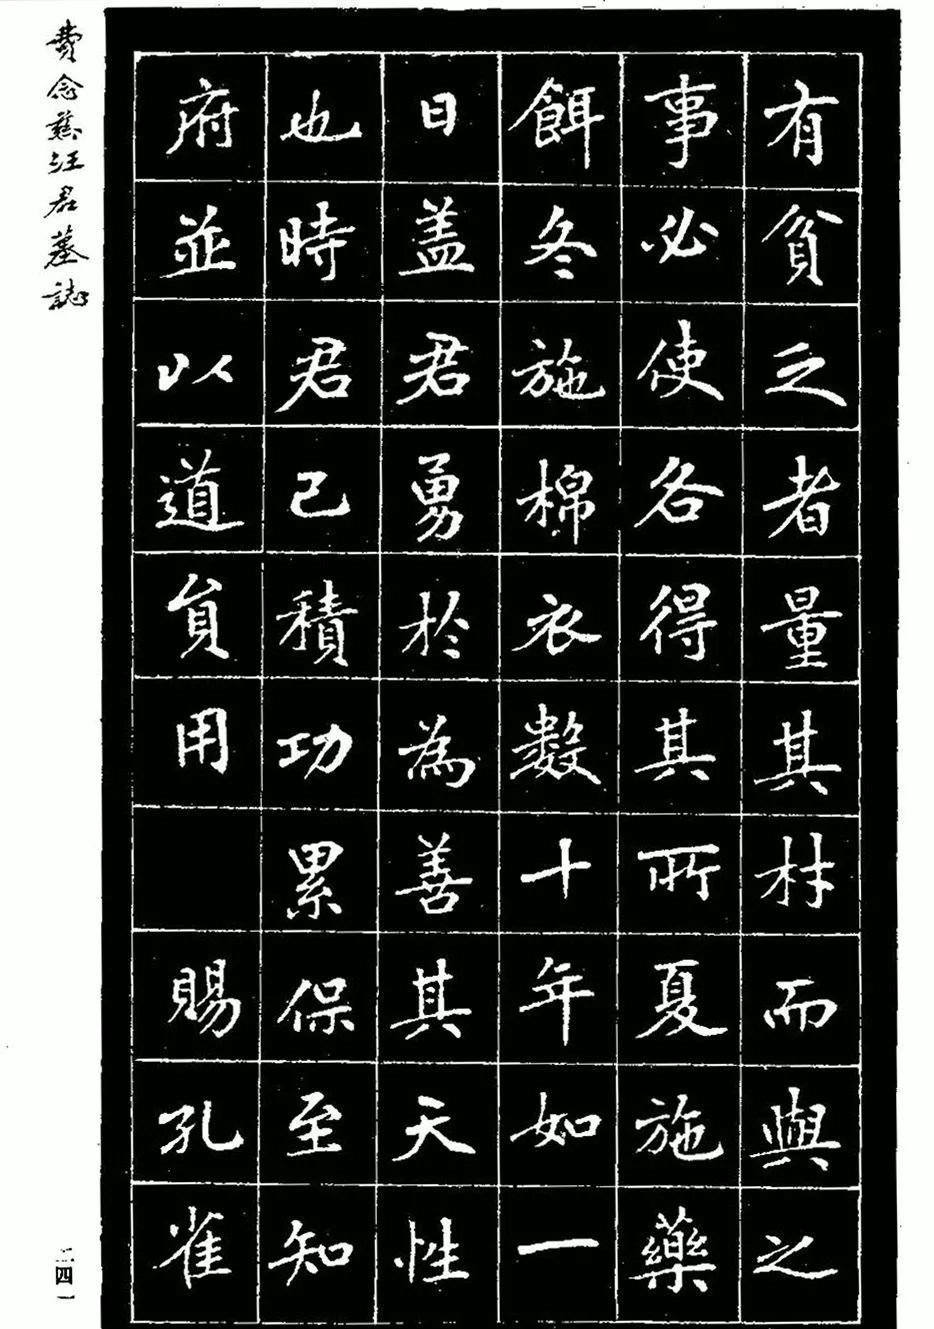 有貧乏者量其材而與之
事必使各得其所夏施藥
餌冬施棉衣數十年如一
日蓋君勇於為善其天性
也時君已積功累保至知
府並以道員用賜孔雀
費念慈汪君墓誌
二四一